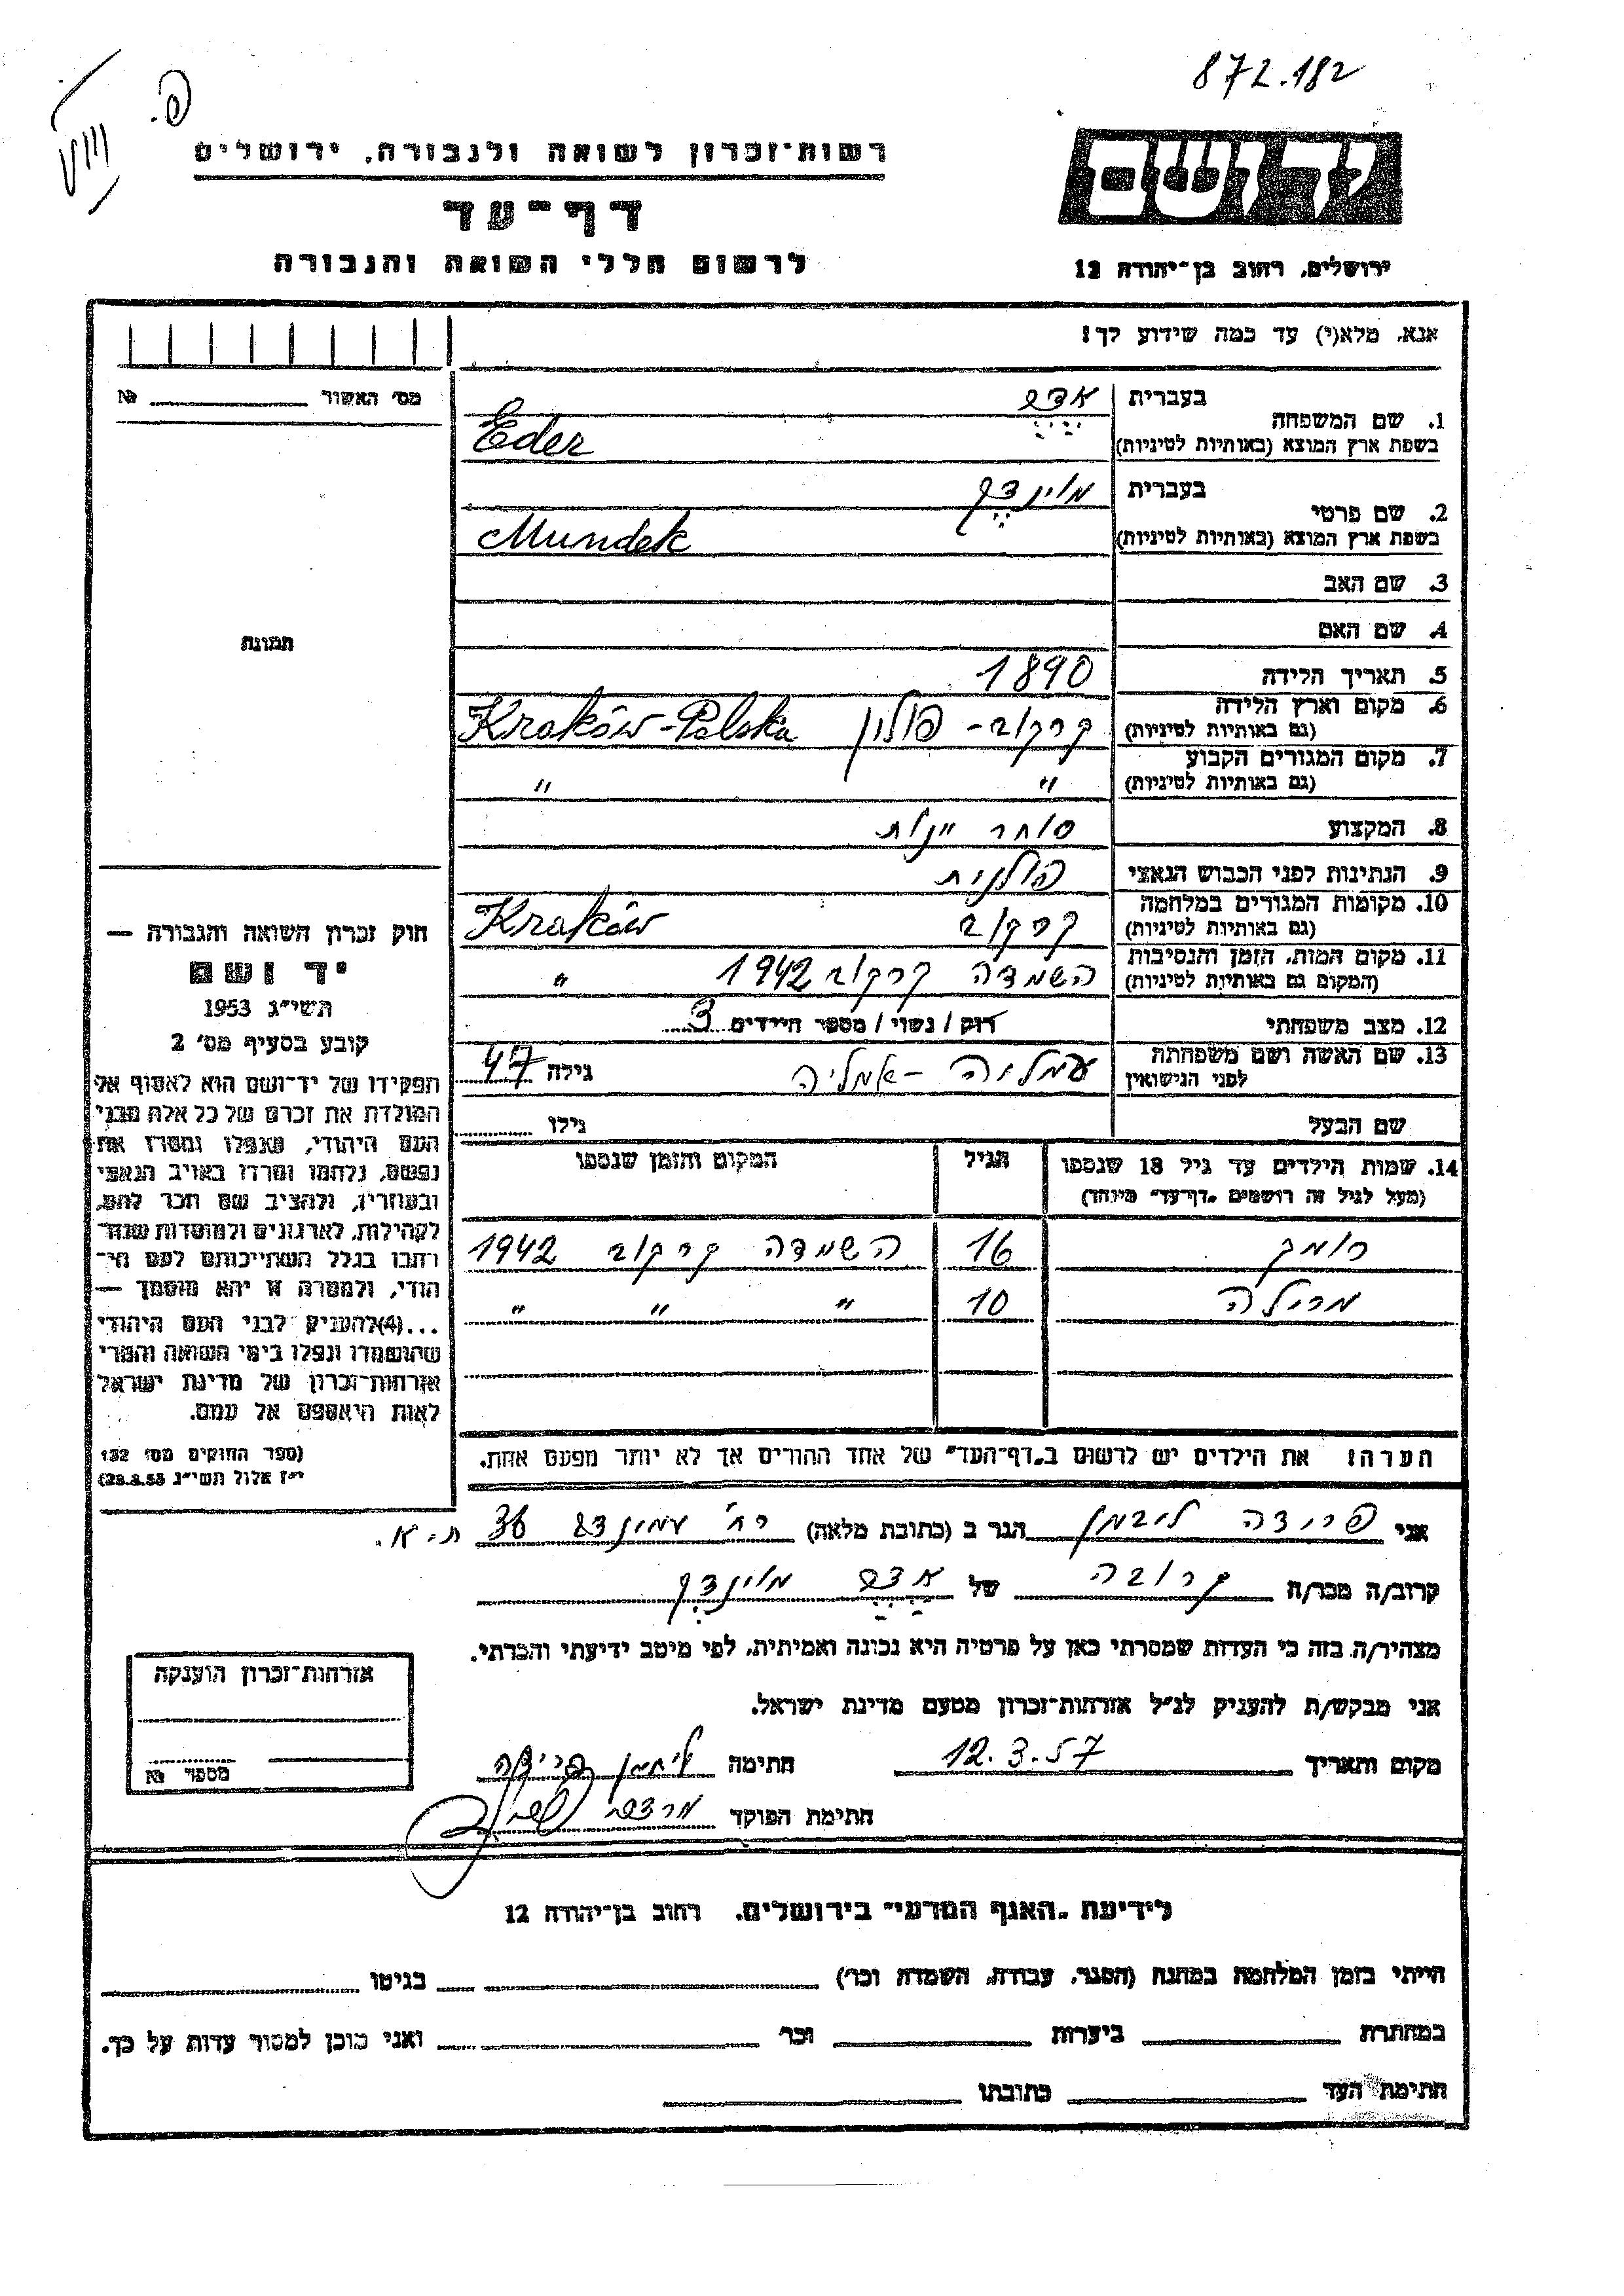 872.182
פ.
רשות־זכרון לשואה ולגבורה, ירושלים
דף־עד
לרשום חללי השואה והגבורה
ידושם
ירושלים, רחוב בן־יהודה 12
אנא, מלא(י) עד כמה שידוע לך!
מס׳ האשור № 
1. שם המשפחה
בעברית אדר
בשפת ארץ המוצא (באותיות לטיניות) Eder
2. שם פרטי
בעברית מונדק
בשפת ארץ המוצא (באותיות לטיניות) Mundek
3. שם האב
4. שם האם
5. תאריך הלידה 1890
6. מקום וארץ הלידה
(גם באותיות לטיניות) קרקוב - פולין Kraków-Polska
7. מקום המגורים הקבוע
(גם באותיות לטיניות) " "
8. המקצוע סוחר יינות
9. הנתינות לפני הכבוש הנאצי פולנית
10. מקומות המגורים במלחמה
(גם באותיות לטיניות) קרקוב Kraków
11. מקום המות, הזמן והנסיבות
(המקום גם באותיות לטיניות) השמדה קרקוב 1942 "
12. מצב משפחתי רוק / נשוי / מספר הילדים 3
13. שם האשה ושם משפחתה
לפני הנישואין אמליה גילה 47
שם הבעל גילו
14. שמות הילדים עד גיל 18 שנספו הגיל המקום והזמן שנספו
(מעל לגיל זה רושמים „דף־עד״ מיוחד)
רומק 16 השמדה קרקוב 1942
מרילה 10 " " "
הערה! את הילדים יש לרשום ב„דף־העד״ של אחד ההורים אך לא יותר מפעם אחת.
תמונה
חוק זכרון השואה והגבורה —
יד ושם
תשי״ג 1953
קובע בסעיף מס׳ 2
תפקידו של יד־ושם הוא לאסוף אל
המולדת את זכרם של כל אלה מבני
העם היהודי, שנפלו ומסרו את
נפשם, נלחמו ומרדו באויב הנאצי
ובעוזריו, ולהציב שם וזכר להם,
לקהילות, לארגונים ולמוסדות שנח־
רבו בגלל השתייכותם לעם הי־
הודי, ולמטרה זו יהא מוסמך —
...(4) להעניק לבני העם היהודי
שהושמדו ונפלו בימי השואה והמרי
אזרחות־זכרון של מדינת ישראל
לאות היאספם אל עמם.
(ספר החוקים מס׳ 132
י״ז אלול תשי״ג 28.8.53)
אני פרידה ליבמן הגר ב (כתובת מלאה) רח׳ 36 ת.א.
קרוב/ה מכר/ה קרובה של אדר מונדק
מצהיר/ה בזה כי העדות שמסרתי כאן על פרטיה היא נכונה ואמיתית, לפי מיטב ידיעתי והכרתי.
אני מבקש/ת להעניק לנ״ל אזרחות־זכרון מטעם מדינת ישראל.
מקום ותאריך 12.3.57 חתימה ליבמן פרידה
חתימת הפוקד
אזרחות־זכרון הוענקה
מספר №
לידיעת „האגף המדעי״ בירושלים, רחוב בן־יהודה 12
הייתי בזמן המלחמה במחנה (הסגר, עבודה, השמדה וכו׳) בגיטו
במחתרת ביערות וכו׳ ואני מוכן למסור עדות על כך.
חתימת העד כתובתו